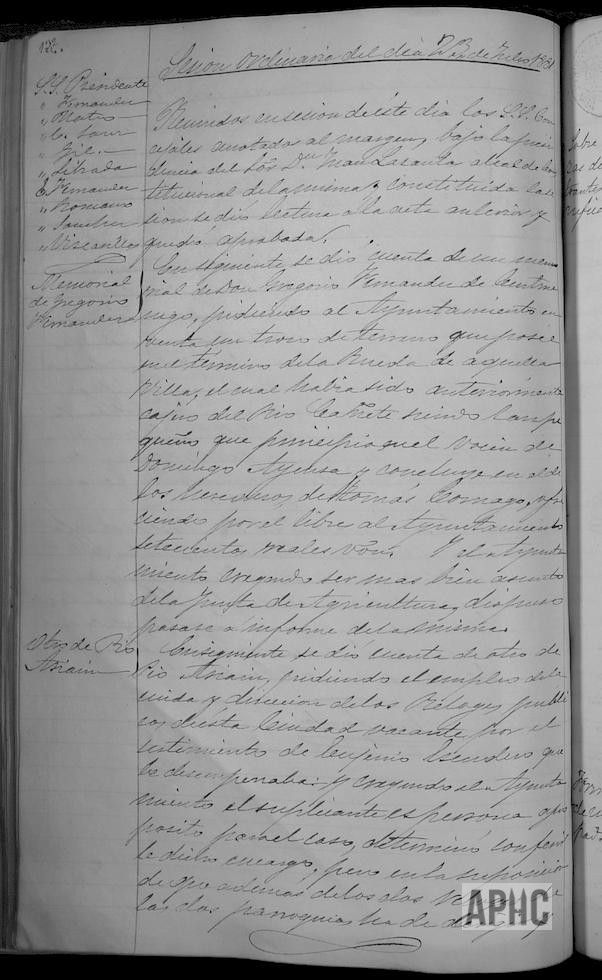 122.
Sesion ordinaria del dia 23 de Julio 1851
S.S. Presidente
" Fernandez
" Mateo
" C. Sanz
" Gil
" Librada
C. Fernandez
" Romano
" Sanchez
" Vizcarilla
Reunidos en sesion de éste dia los S.S. Con
cejales anotados al margen, bajo la presi
dencia del Sôr Dn Juan Lasanta alcalde cons
titucional de la misma y constituida la se
sion se dió lectura a la acta anterior y
quedó aprobada.
Memorial
de Gregorio
Fernandez
Ensiguiente se dió cuenta de un memo
rial de Don Gregorio Fernandez de Centrue
nigo, pidiendo al Ayuntamiento en
venta un trozo de terreno que posee
en el término de la Rueda de aquella
Villa, el cual habia sido anteriormente
cajero del Rio Cañete siendo tan pe
queño que principia en el de
Domingo Ayensa y concluye en el de
los herederos de Tomás Cornago, ofre
ciendo por el libre al Ayuntamiento
setecientos reales von. Y el Ayunta
miento creyendo ser mas bien asunto
de la Junta de Agricultura, dispuso
pasase a informe de la misma.
Otro de Pio
Asiain
Ensiguiente se dió cuenta de otro de
Pio Asiain, pidiendo el empleo de la
cuida y direccion de los Relojes publi
cos de esta Ciudad vacante por el
de Eugenio Escudero que
lo desempeñaba: y creyendo el Ayunta
miento el suplicante es persona apro
posito para el caso, determinó conferir
le dicho encargo, pero en la suposicion
de que ademas de los dos
las dos parroquias ha de
APHC